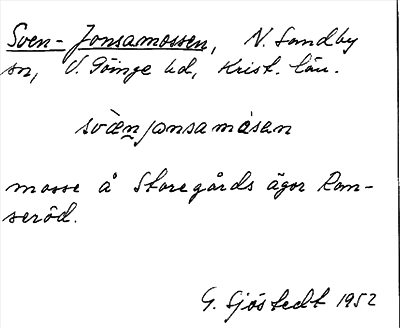 Sven-Jonsamossen, N. Sandby
sn, V. Göinge hd, Krist. län.
svὰnjonsamåsan
mosse å Storegårds ägor Ram-
seröd.
G. Sjöstedt 1952